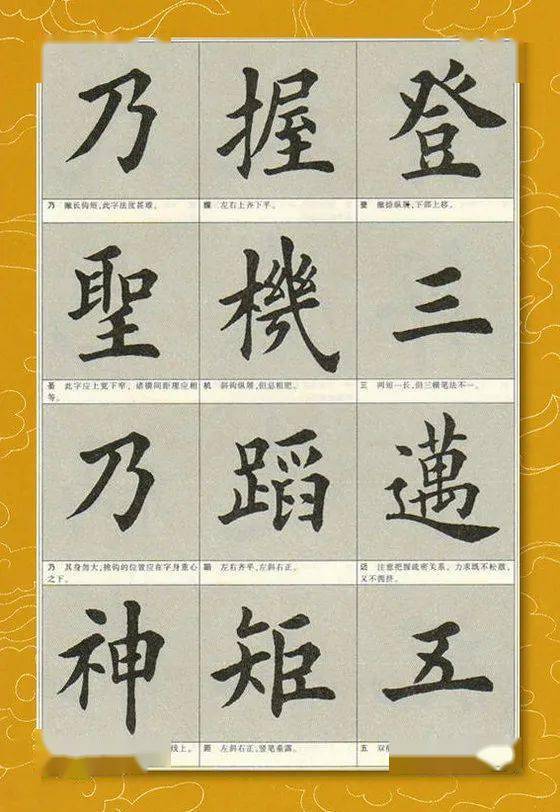 登
登 撇捺纵腾,下部上移。
三
三 两短一长,但三横笔法不一。
邁
迈 注意把握疏密关系。力求既不松散,
又不拥挤。
五
五 双
握
握 左右上齐下平。
機
机 斜钩纵展,但忌粗肥。
蹈
蹈 左右齐平,左斜右正。
矩
矩 左斜右正,竖笔垂露。
乃
乃 撇长钩短,此字法度甚难。
聖
圣 此字应上宽下窄,诸横间距理应相
等。
乃
乃 其身勿大;挑钩的位置应在字身重心
之下。
神
线上。